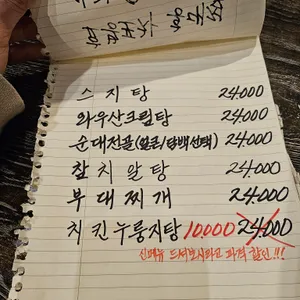 스지탕 24,000
와우산크림탕 24,000
순대전골(얼큰/담백선택) 24,000
참치알탕 24,000
부대찌개 24,000
치킨누룽지탕 10000 24,000
신메뉴 드셔보시라고 파격 할인!!!